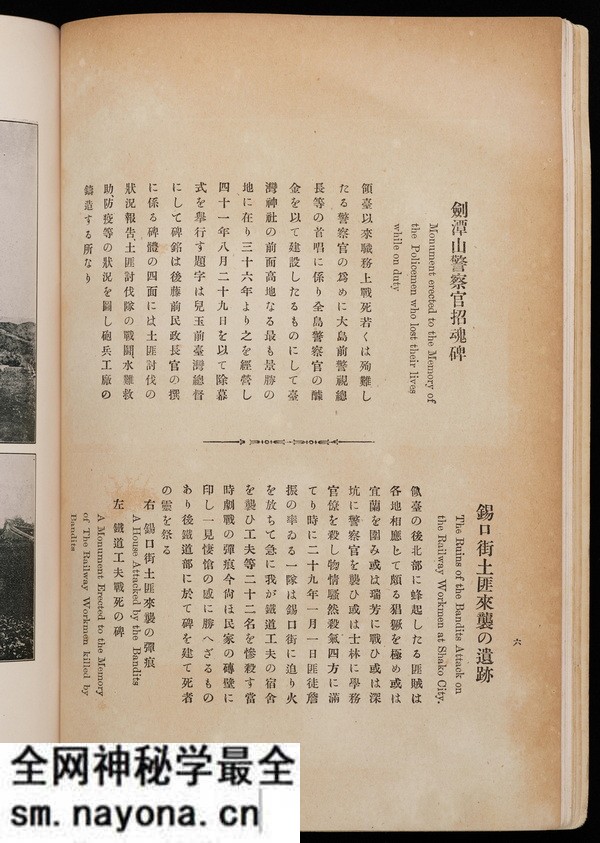 劍潭山警察官招魂碑
Monument erected to the Memory of
the Policemen who lost their lives
while on duty
領臺以來職務上戰死若くは殉難し
たる警察官の爲めに大島前警視總
長等の首唱に係り全島警察官の醵
金を以て建設したるものにして臺
灣神社の前面高地なる最も景勝の
地に在り三十六年より之を經營し
四十一年八月二十九日を以て除幕
式を舉行す題字は兒玉前臺灣總督
にして碑銘は後藤前民政長官の撰
に係る碑體の四面には土匪討伐の
狀況報告土匪討伐隊の戰鬪水難救
助防疫等の狀況を圖し砲兵工廠の
鑄造する所なり
錫口街土匪來襲の遺跡
The Ruins of the Bandits Attack on
the Railway Workmen at Shako City.
領臺の後北部に蜂起したる匪賊は
各地相應して頗る猖獗を極め或は
宜蘭を圍み或は瑞芳に戰ひ或は深
坑に警察官を襲ひ或は士林に學務
官僚を殺し物情騷然殺氣四方に滿
てり時に二十九年一月一日匪徒詹
振の率ゐる一隊は錫口街に迫り火
を放ちて急に我が鐵道工夫の宿舍
を襲ひ工夫等二十二名を慘殺す當
時劇戰の彈痕今尙ほ民家の磚壁に
印し一見悽愴の感に勝へざるもの
あり後鐵道部に於て碑を建て死者
の靈を祭る
右 錫口街土匪來襲の彈痕
A House Attacked by the Bandits
左 鐵道工夫戰死の碑
A Monument Erected to the Memory
of The Railway Workmen killed by
Bandits
六
全网神秘学最全
sm.nayona.cn